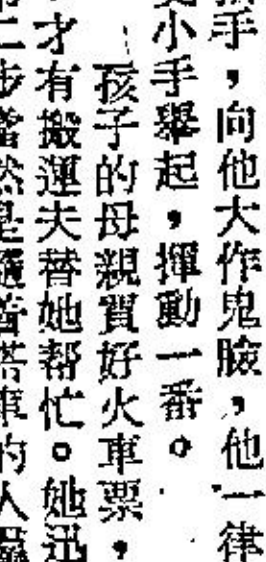 手，向他大作鬼臉，他一律
小手舉起，揮動一番。
孩子的母親買好火車票，
才有搬運夫替她帮忙。她迅
二步當然是隨着搭車的人